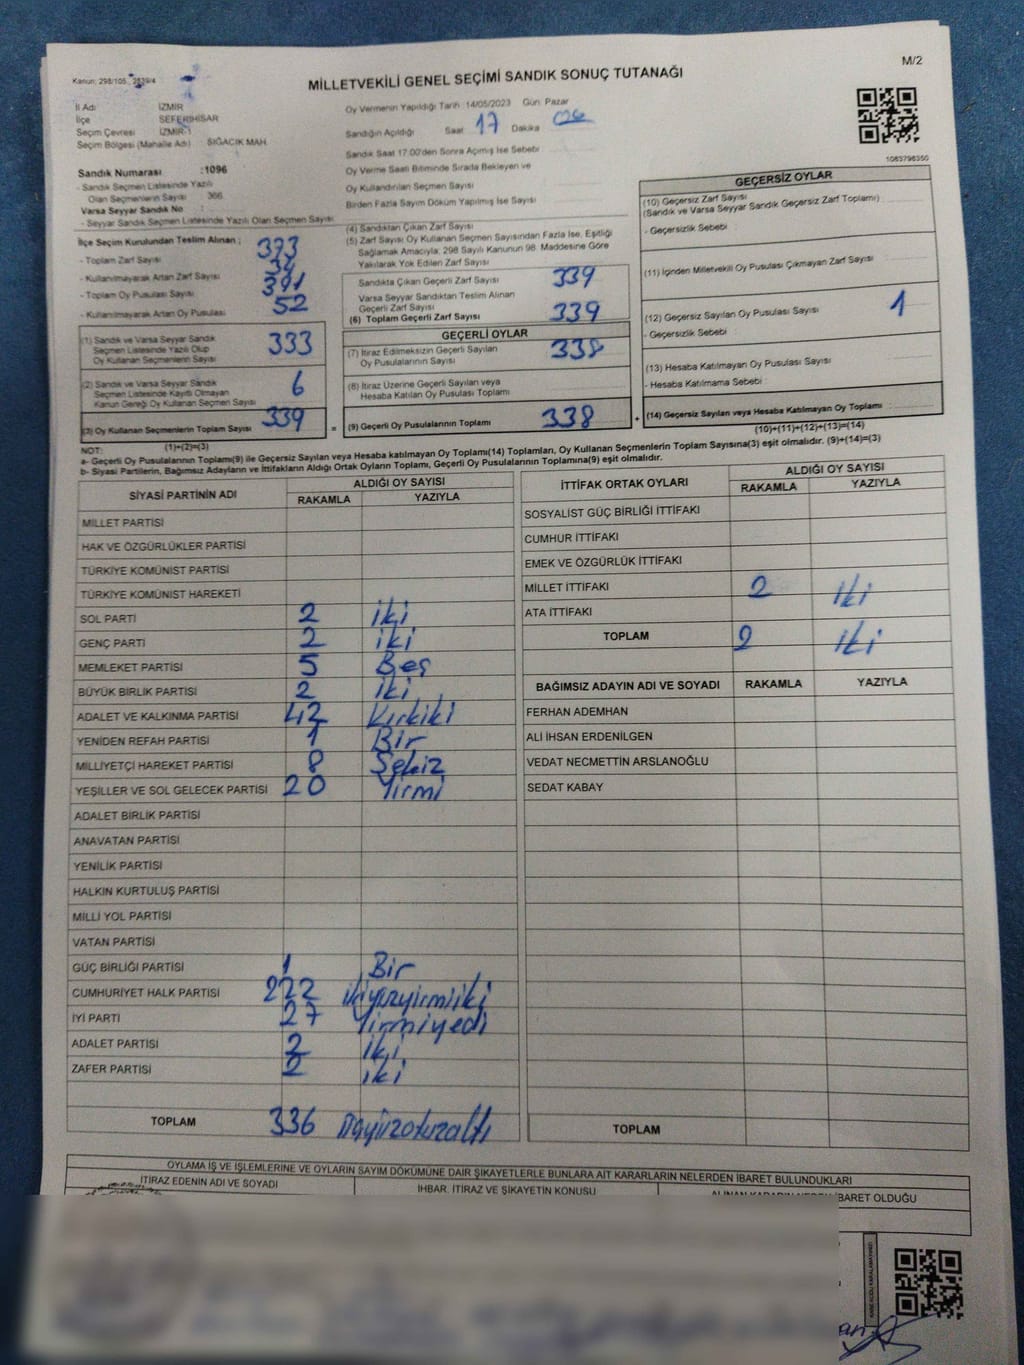 M/2
Kanun: 298/105, 2839/4
MİLLETVEKİLİ GENEL SEÇİMİ SANDIK SONUÇ TUTANAĞI
İl Adı İZMİR
İlçe SEFERİHİSAR
Seçim Çevresi İZMİR-1
Seçim Bölgesi (Mahalle Adı) SIĞACIK MAH
Sandık Numarası :1096
- Sandık Seçmen Listesinde Yazılı
Olan Seçmenlerin Sayısı 366
Varsa Seyyar Sandık No :
- Seyyar Sandık Seçmen Listesinde Yazılı Olan Seçmen Sayısı
Oy Vermenin Yapıldığı Tarih 14/05/2023 Gün: Pazar
Sandığın Açıldığı Saat 17 Dakika
Sandık Saat 17:00'den Sonra Açılmış İse Sebebi :
Oy Verme Saati Bitiminde Sırada Bekleyen ve
Oy Kullandırılan Seçmen Sayısı
Birden Fazla Sayım Döküm Yapılmış İse Sayısı
1063798350
İlçe Seçim Kurulundan Teslim Alınan ;
- Toplam Zarf Sayısı
- Kullanılmayarak Artan Zarf Sayısı
- Toplam Oy Pusulası Sayısı
- Kullanılmayarak Artan Oy Pusulası 52
(1) Sandık ve Varsa Seyyar Sandık
Seçmen Listesinde Yazılı Olup
Oy Kullanan Seçmenlerin Sayısı 333
(2) Sandık ve Varsa Seyyar Sandık
Seçmen Listesinde Kayıtlı Olmayan
Kanun Gereği Oy Kullanan Seçmen Sayısı 6
(3) Oy Kullanan Seçmenlerin Toplam Sayısı 339
(1)+(2)=(3)
(4) Sandıktan Çıkan Zarf Sayısı
(5) Zarf Sayısı Oy Kullanan Seçmen Sayısından Fazla İse, Eşitliği
Sağlamak Amacıyla; 298 Sayılı Kanunun 98. Maddesine Göre
Yakılarak Yok Edilen Zarf Sayısı
Sandıkta Çıkan Geçerli Zarf Sayısı 339
Varsa Seyyar Sandıktan Teslim Alınan
Geçerli Zarf Sayısı
(6) Toplam Geçerli Zarf Sayısı 339
GEÇERLİ OYLAR
(7) İtiraz Edilmeksizin Geçerli Sayılan
Oy Pusulalarının Sayısı 338
(8) İtiraz Üzerine Geçerli Sayılan veya
Hesaba Katılan Oy Pusulası Toplamı
= (9) Geçerli Oy Pusulalarının Toplamı 338 +
GEÇERSİZ OYLAR
(10) Geçersiz Zarf Sayısı
(Sandık ve Varsa Seyyar Sandık Geçersiz Zarf Toplamı)
- Geçersizlik Sebebi :
(11) İçinden Milletvekili Oy Pusulası Çıkmayan Zarf Sayısı
(12) Geçersiz Sayılan Oy Pusulası Sayısı 1
- Geçersizlik Sebebi :
(13) Hesaba Katılmayan Oy Pusulası Sayısı
- Hesaba Katılmama Sebebi :
(14) Geçersiz Sayılan veya Hesaba Katılmayan Oy Toplamı
(10)+(11)+(12)+(13)=(14)
NOT:
a- Geçerli Oy Pusulalarının Toplamı(9) ile Geçersiz Sayılan veya Hesaba Katılmayan Oy Toplamı(14) Toplamları, Oy Kullanan Seçmenlerin Toplam Sayısına(3) eşit olmalıdır. (9)+(14)=(3)
b- Siyasi Partilerin, Bağımsız Adayların ve İttifakların Aldığı Ortak Oyların Toplamı, Geçerli Oy Pusulalarının Toplamına(9) eşit olmalıdır.
SİYASİ PARTİNİN ADI ALDIĞI OY SAYISI
RAKAMLA YAZIYLA
MİLLET PARTİSİ
HAK VE ÖZGÜRLÜKLER PARTİSİ
TÜRKİYE KOMÜNİST PARTİSİ
TÜRKİYE KOMÜNİST HAREKETİ
SOL PARTİ 2 iki
GENÇ PARTİ 2 iki
MEMLEKET PARTİSİ 5 Beş
BÜYÜK BİRLİK PARTİSİ 2 iki
ADALET VE KALKINMA PARTİSİ 42 Kırkiki
YENİDEN REFAH PARTİSİ 1 Bir
MİLLİYETÇİ HAREKET PARTİSİ 8 Sekiz
YEŞİLLER VE SOL GELECEK PARTİSİ 20 Yirmi
ADALET BİRLİK PARTİSİ
ANAVATAN PARTİSİ
YENİLİK PARTİSİ
HALKIN KURTULUŞ PARTİSİ
MİLLİ YOL PARTİSİ
VATAN PARTİSİ
GÜÇ BİRLİĞİ PARTİSİ 1 Bir
CUMHURİYET HALK PARTİSİ 222 ikiyüzyirmiiki
İYİ PARTİ 27 Yirmiyedi
ADALET PARTİSİ 2 iki
ZAFER PARTİSİ 2 iki
TOPLAM 336 üçyüzotuzaltı
İTTİFAK ORTAK OYLARI ALDIĞI OY SAYISI
RAKAMLA YAZIYLA
SOSYALİST GÜÇ BİRLİĞİ İTTİFAKI
CUMHUR İTTİFAKI
EMEK VE ÖZGÜRLÜK İTTİFAKI
MİLLET İTTİFAKI 2 iki
ATA İTTİFAKI
TOPLAM 2 iki
BAĞIMSIZ ADAYIN ADI VE SOYADI RAKAMLA YAZIYLA
FERHAN ADEMHAN
ALİ İHSAN ERDENİLGEN
VEDAT NECMETTİN ARSLANOĞLU
SEDAT KABAY
TOPLAM
OYLAMA İŞ VE İŞLEMLERİNE VE OYLARIN SAYIM DÖKÜMÜNE DAİR ŞİKAYETLERLE BUNLARA AİT KARARLARIN NELERDEN İBARET BULUNDUKLARI
İTİRAZ EDENİN ADI VE SOYADI İHBAR, İTİRAZ VE ŞİKAYETİN KONUSU ALINAN KARARIN NEDEN İBARET OLDUĞU